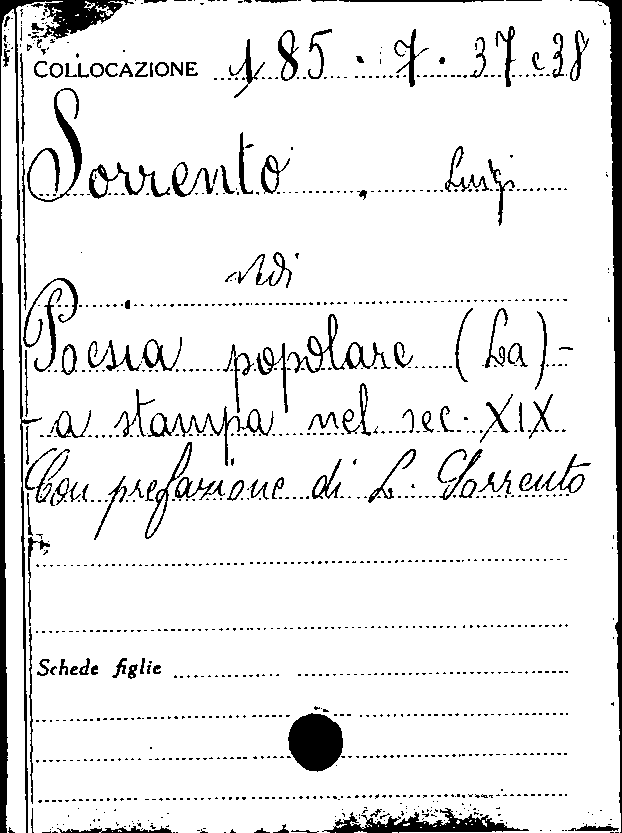 COLLOCAZIONE 185.7.37 e 38
Sorrento, Luigi
vedi
Poesia popolare (La) -
- a stampa nel sec. XIX
Con prefazione di L. Sorrento
Schede figlie